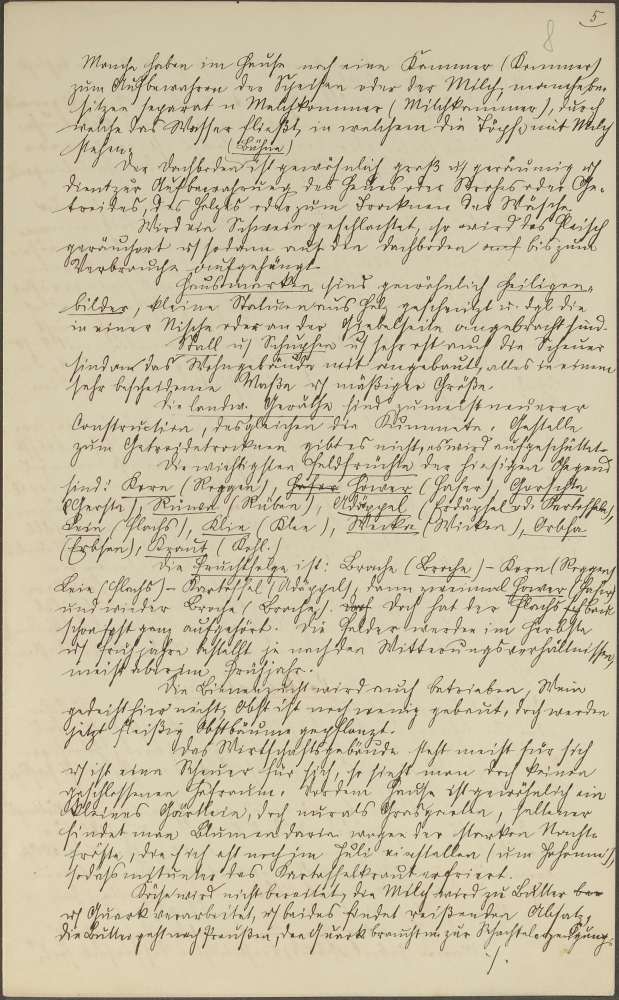 5
8
Manche haben im Hause noch eine Kammer (Kommer)
zum Aufbewahren der Speisen oder der Milch, manche be-
sitzen separat n Melchkommer (Milchkammer), durch
welche das Wasser fließt, in welchem die Töpfe mit Milch
stehen.
(Bühne)
Der Dachboden ist gewöhnlich groß u. geräumig u.
dient zur Aufbewahrung des Heues oder Strohes oder Ge-
treides, des Holzes oder zum Trocknen der Wäsche.
Wird ein Schwein geschlachtet, so wird das Fleisch
geräuchert u. sodann auf den Dachboden bis zum
Verbrauche aufgehängt.
Hausmarken sind gewöhnlich Heiligen-
bilder, kleine Statuen aus Holz geschnitzt u. dgl. die
in einer Nische oder an der Giebelseite angebracht sind.
Stall u. Schuphen u. sehr oft auch die Scheuer
sind an das Wohngebäude mit angebaut, alles in einem
sehr bescheidenen Maße u. mäßiger Größe.
Die landw. Geräthe sind zumeist neuerer
Construction, desgleichen die Kummete. Gestelle
zum Getreidetrocknen gibt es nicht, es wird aufgeschüttet.
Die wichtigsten Feldfrüchte der hiesigen Gegend
sind: Korn (Roggen), Hafer Hower (Hafer), Garschte
(Gerste), Rüwen (Rüben), Adäppel (Erdäpfel od. Kartoffeln),
Lein (Flachs), Klie (Klee), Wecken (Wicken), Orbsa
(Erbsen), Kraut (Kohl.)
Die Fruchtfolge ist: Brache (Broche) – Korn (Roggen)
Lein (Flachs) – Kartoffel (Adäppel), dann zweimal Hower (Hafer)
und wieder Broche (Brache). Doch hat der Flachsbau
schon fast ganz aufgehört. Die Felder werden im Herbste
u. Frühjahre bestellt je nach den Witterungsverhältnissen,
meist aber im Frühjahr.
Die Bienenzucht wird auch betrieben, Wein
gedeiht hier nicht, Obst ist noch wenig gebaut, doch werden
jetzt fleißig Obstbäume gepflanzt.
Das Wirtschaftsgebäude steht meist für sich
u. ist eine Scheuer für sich, so sieht man doch keinen
geschlossenen Hofraum. Vor dem Hause ist gewöhnlich ein
kleines Gärtlein, doch nur als Grasgarten, seltener
findet man Blumen darin wegen der starken Nacht-
fröste, die sich oft noch im Juli einstellen (um Johanni),
sodass mitunter das Kartoffelkraut erfriert.
Käse wird nicht bereitet, die Milch wird zu Butter
u. Quark verarbeitet, u. beides findet reißenden Absatz,
die Butter geht nach Preußen, den Quark braucht man zur Schachtelerzeugung.
./.